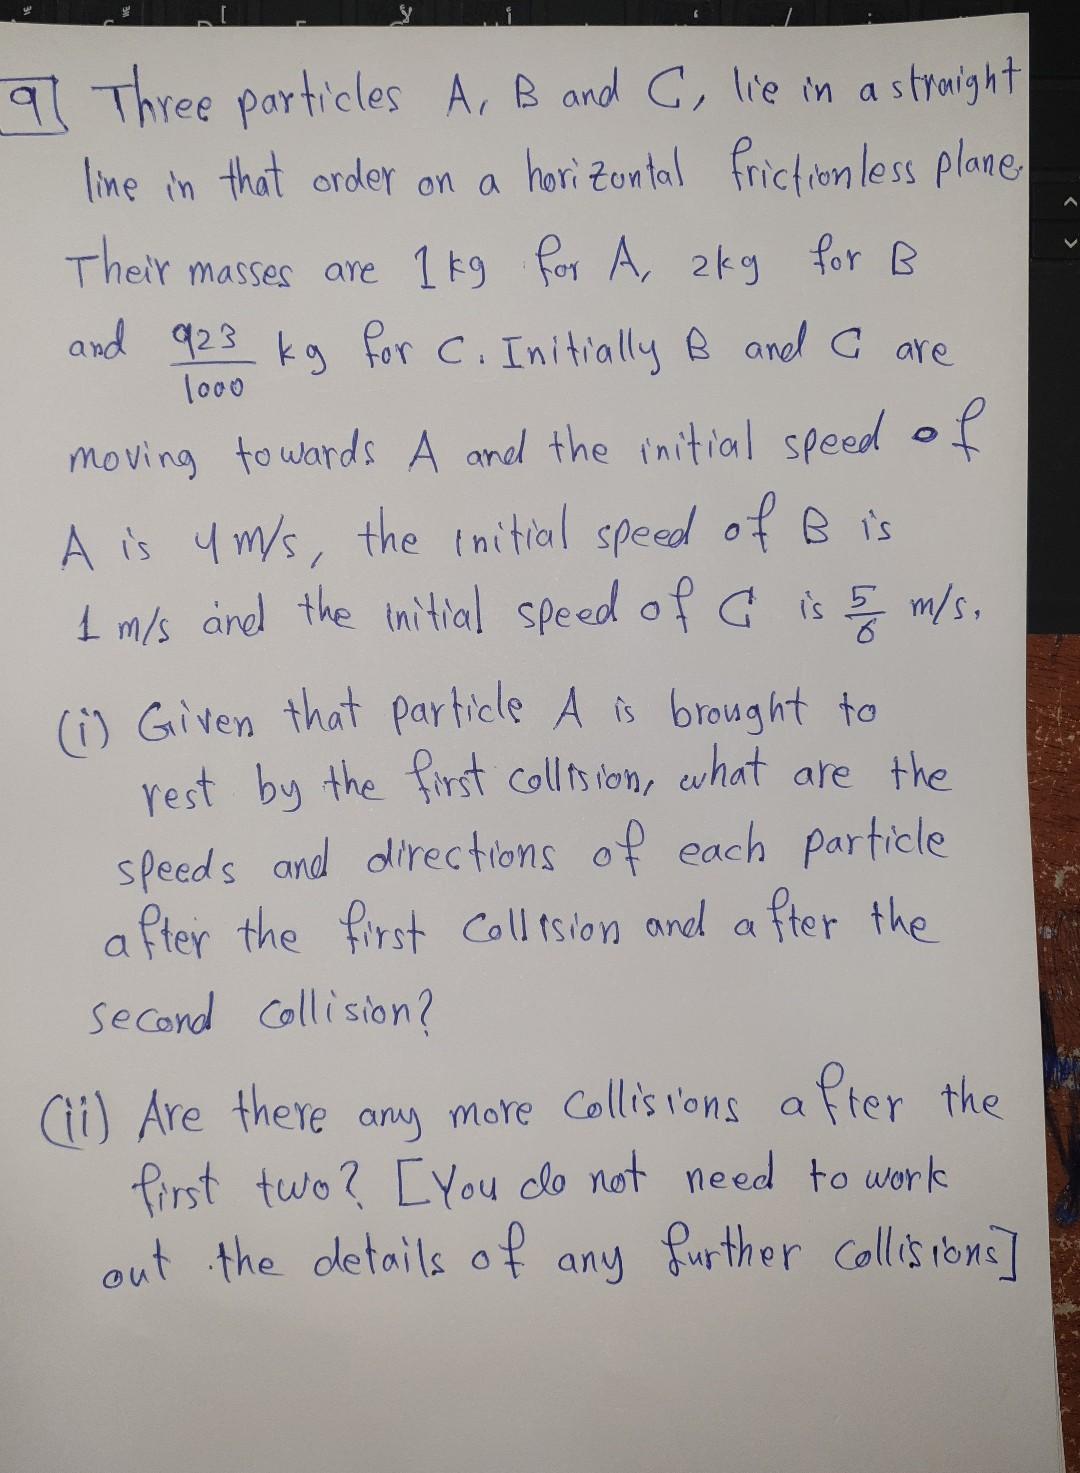 9 Three particles A, B and C, lie in a straight
line in that order on a horizontal frictionless plane.
Their masses are 1 kg for A, 2kg for B
and 923/1000 kg for C. Initially B and C are
moving towards A and the initial speed of
A is 4 m/s, the initial speed of B is
1 m/s and the initial speed of C is 5/6 m/s.
(i) Given that particle A is brought to
rest by the first collision, what are the
speeds and directions of each particle
after the first collision and after the
second collision?
(ii) Are there any more collisions after the
first two? [You do not need to work
out the details of any further collisions]